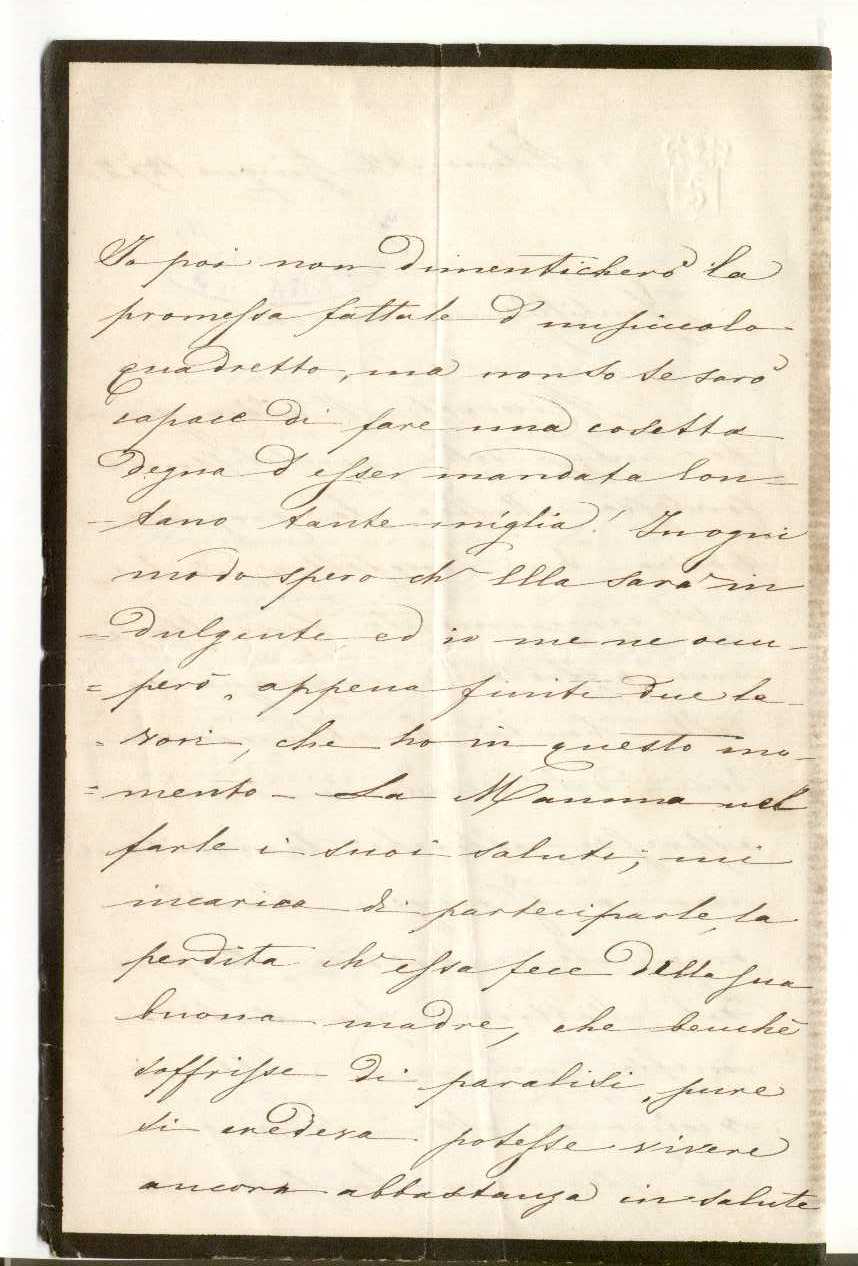 Io poi non dimenticherò la
promessa fattale d'un piccolo
quadretto, ma non so se sarò
capace di fare una cosetta
degna d'esser mandata lon-
-tano tante miglia! In ogni
modo spero ch'Ella sarà in
=dulgente ed io me ne occu-
=però, appena finiti due la-
-vori, che ho in questo mo-
=mento - La Mamma nel
farle i suoi saluti, mi
incarica di parteciparle, la
perdita ch'essa fece della sua
buona madre, che benchè
soffrisse di paralisi, pure
si credeva potesse vivere
ancora abbastanza in salute